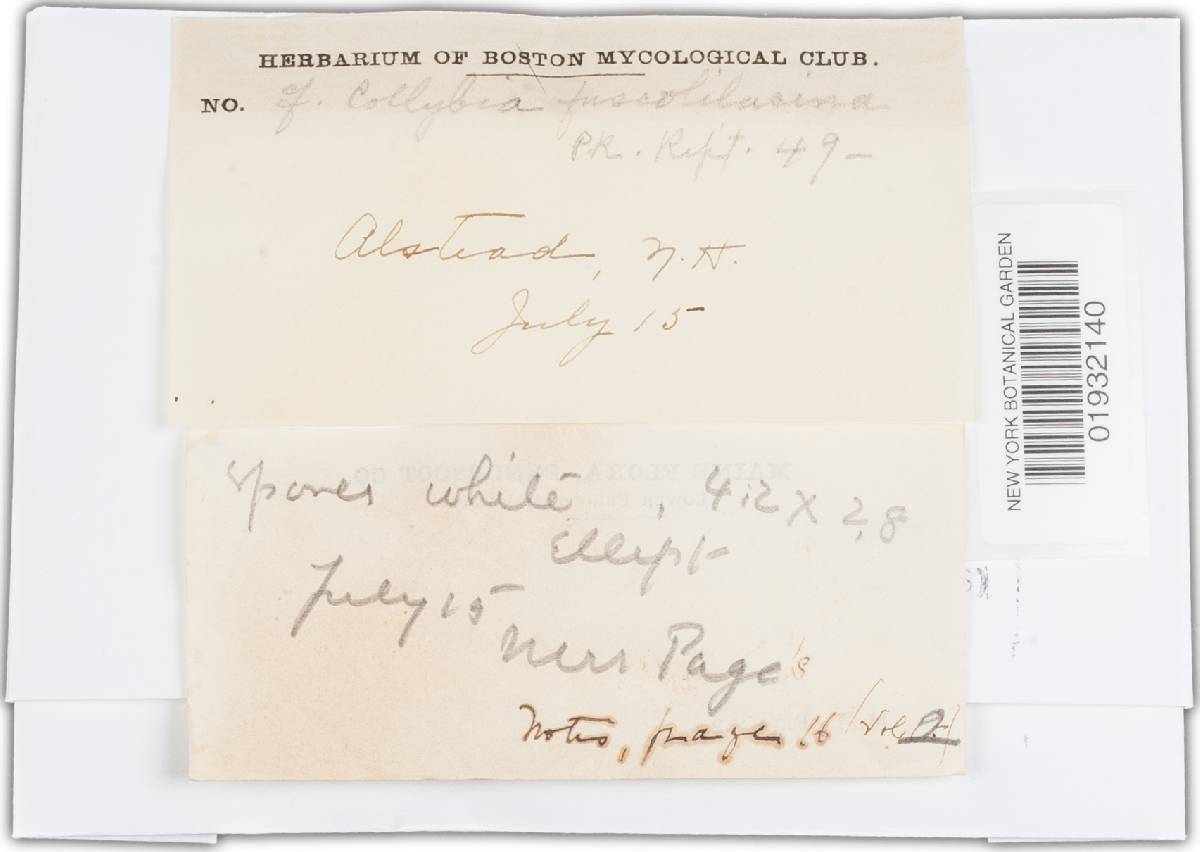 HERBARIUM OF BOSTON MYCOLOGICAL CLUB.
NO. f. Collybia fuscolilacina
Pk. Rept. 49 —
Alstead, N.H.
July 15
Spores white, 4.2 X 2.8
Ellipt
July 15
Page's
Notes, page 16 (Vol.
NEW YORK BOTANICAL GARDEN
01932140